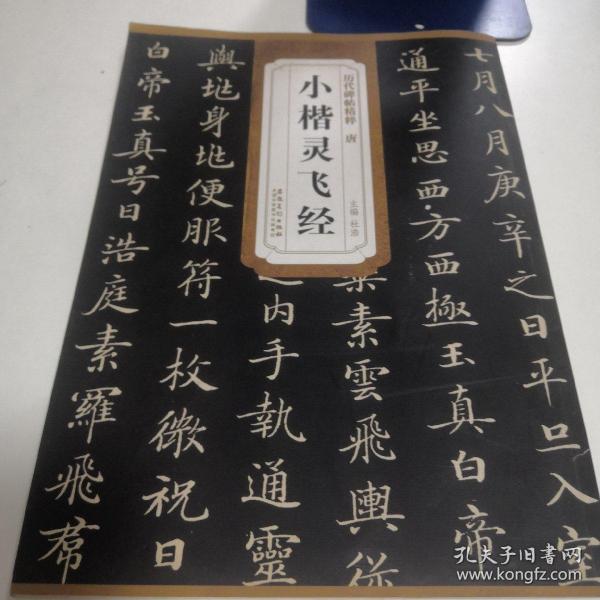 历代碑帖精粹 唐
小楷灵飞经
主编 杜浩
安徽美术出版社
七月八月庚辛之日平旦入室
通平坐思西方西極玉真白帝
素雲飛輿從
內手執通靈
輿女身
便服符一枚微祝曰
白帝玉真号曰浩庭素羅飛帬
孔夫子旧书网
www.kongfz.com